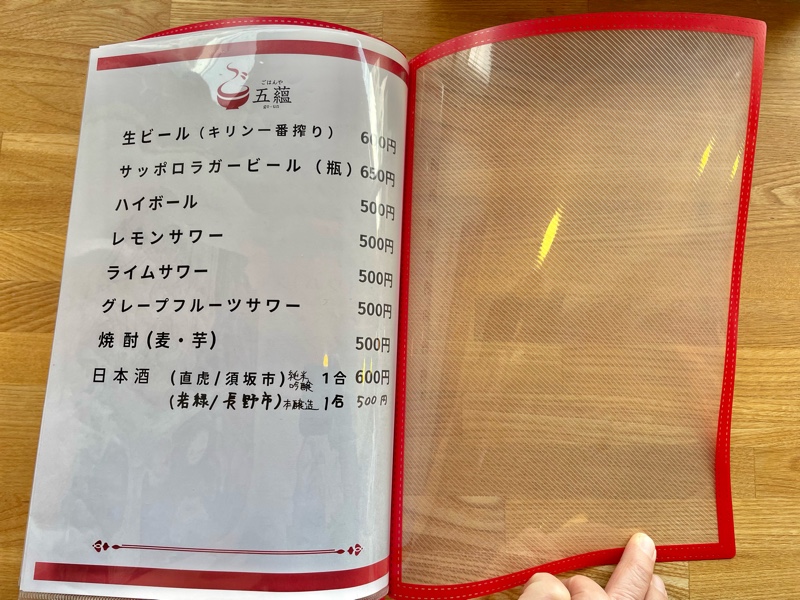 ごはんや
五蘊
go-un
生ビール（キリン一番搾り） 600円
サッポロラガービール（瓶） 650円
ハイボール 500円
レモンサワー 500円
ライムサワー 500円
グレープフルーツサワー 500円
焼酎(麦・芋) 500円
日本酒 (直虎/須坂市)純米吟醸 1合 600円
(若緑/長野市)本醸造 1合 500円